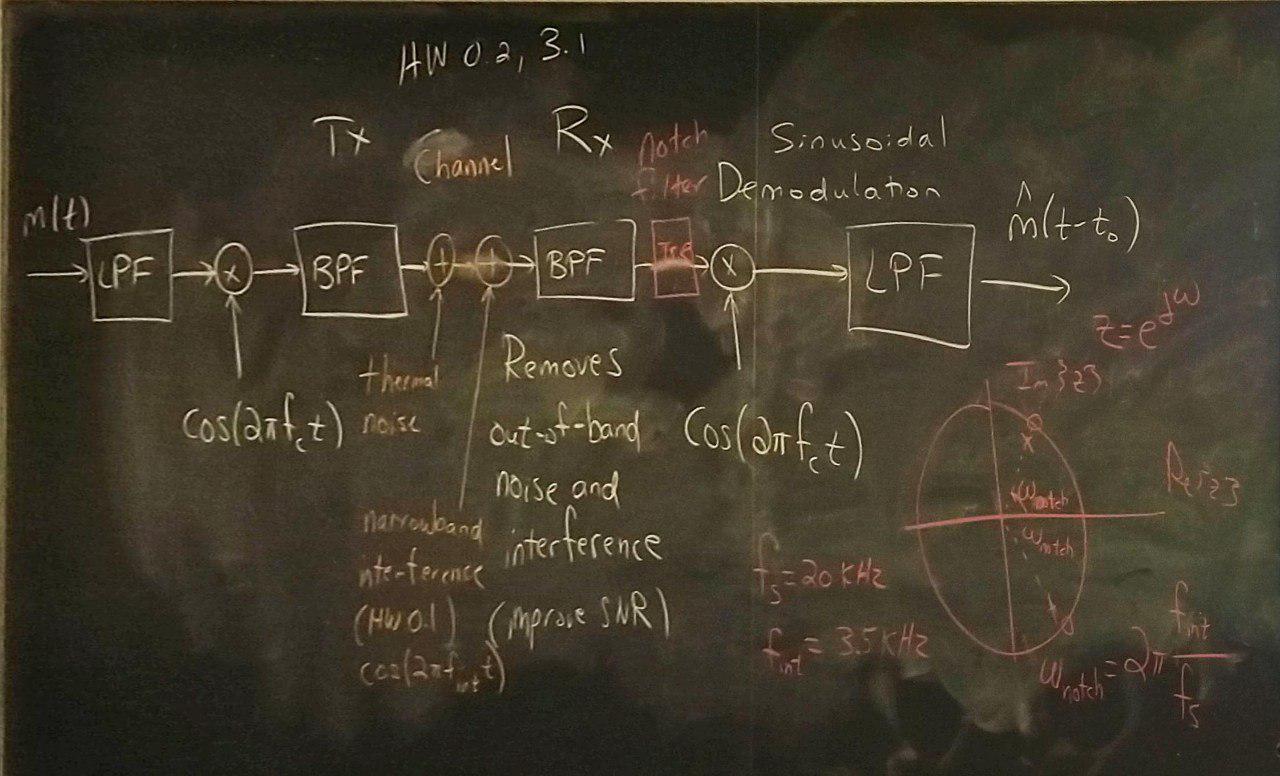 HW 0.2, 3.1
Tx
Channel
Rx
notch
filter
Sinusoidal
Demodulation
m(t)
LPF
x
BPF
+
+
BPF
x
LPF
m̂(t-t₀)
cos(2πf_c t)
thermal
noise
narrowband
interference
(HW 0.1)
cos(2πf_int t)
Removes
out-of-band
noise and
interference
(improve SNR)
cos(2πf_c t)
z=e^jω
Im{z}
Re{z}
ω_notch
ω_notch
f_s=20 kHz
f_int = 3.5 kHz
ω_notch = 2π f_int/f_s